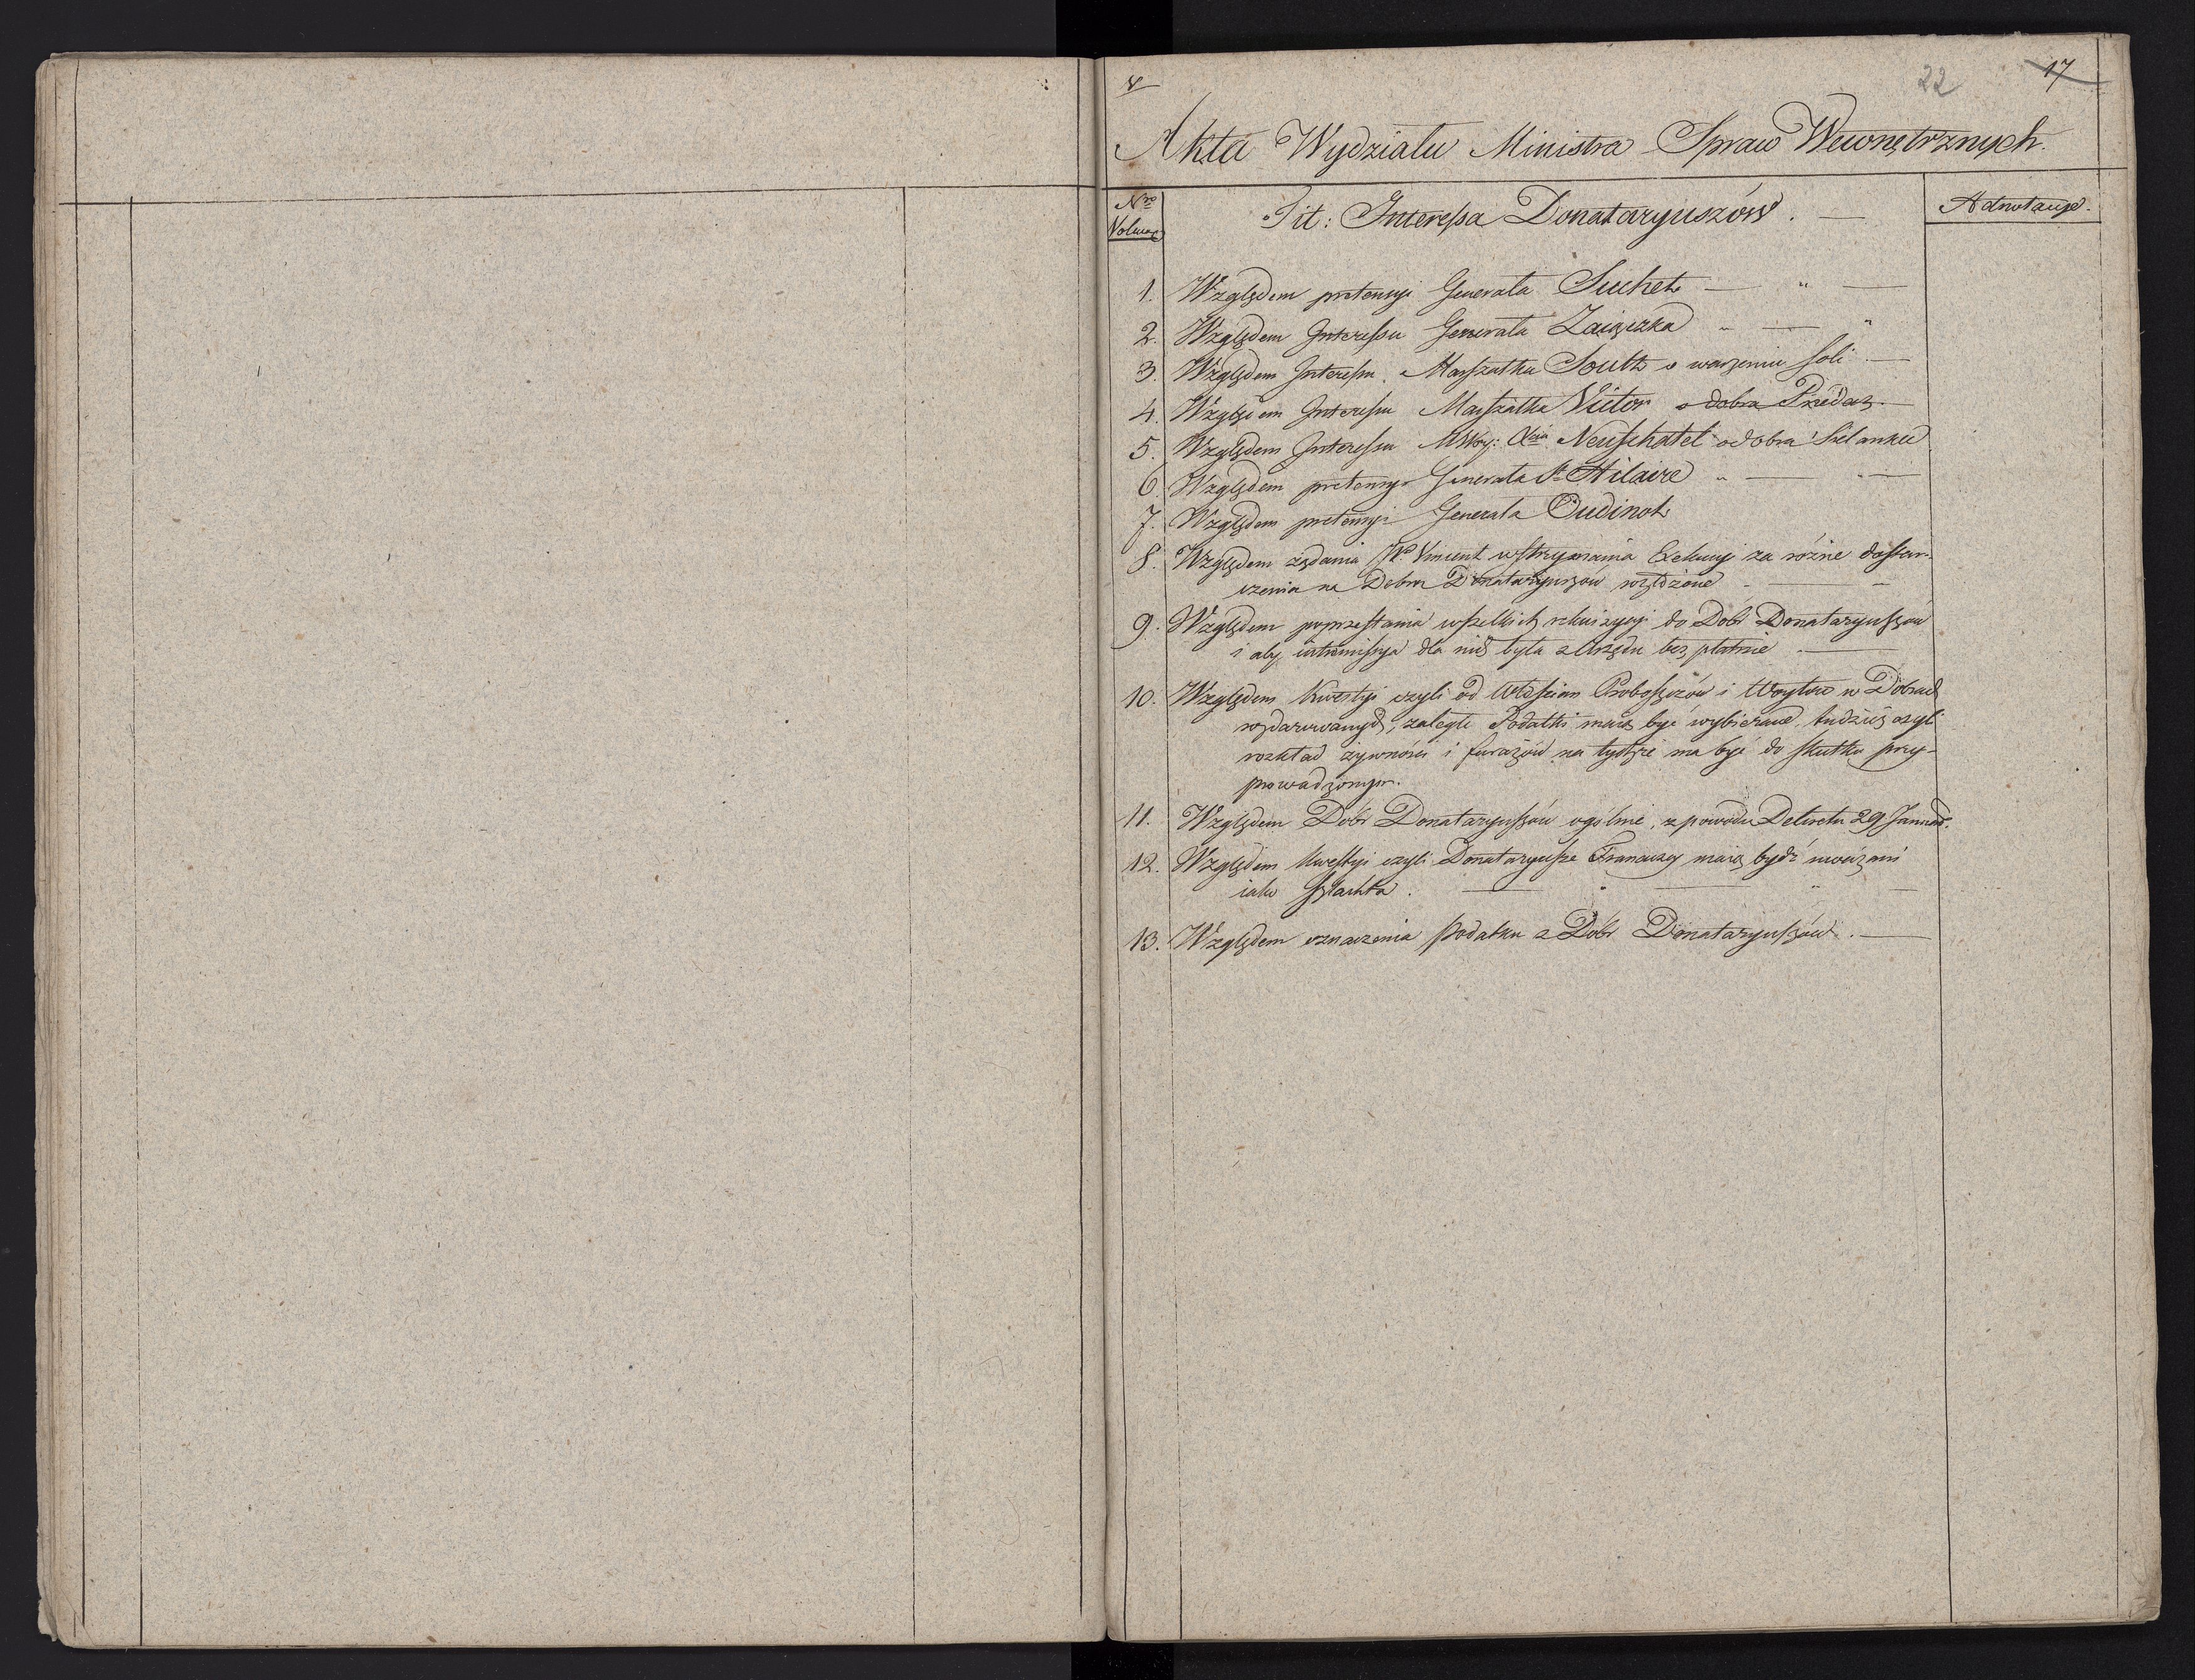 22 17
Akta Wydziału Ministra Spraw Wewnętrznych.
Nro Volum
Tit: Interessa Donataryuszów.
Adnotacye.
1. Względem pretensyi Generała Suchet
2. Względem Interessu Generała Zaiączka
3. Względem Interessu Marszałka Soult o warzeniu soli
4. Względem Interessu Marszałka Victor o dobra
5. Względem Interessu Xcia Neufchatel o dobra
6. Względem pretensyi Generała St Hilaire
7. Względem pretensyi Generała Oudinot
8. Względem żądania JP. Vincent wstrzymania Exekucyi za różne dostar-
czenia na Dobra Donataryuszów
9. Względem poprzestania wszelkich rekwizycyi do Dóbr Donataryuszów
i aby intromissya dla nich była z Urzędu bezpłatnie
10. Względem kwestyi czyli od Włościan Proboszczów i Woytów w Dobrach
wydarowanych, zaległe Podatki maią być wybierane, tudzież czyli
rozkład żywności i furażów na tychże ma być do skutku przy-
prowadzonym.
11. Względem Dóbr Donataryuszów ogólnie, z powodu Dekretu 29
12. Względem kwestyi czyli Donataryusze Francuzcy maią bydź uważani
iako Szlachta.
13. Względem oznaczenia Podatku z Dóbr Donataryuszów.